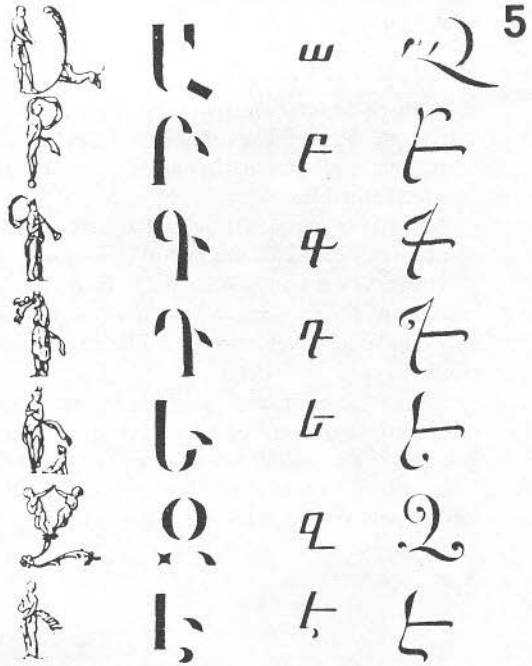 5
Ա Ա ա Ա
Բ Բ բ Բ
Գ Գ գ Գ
Դ Դ դ Դ
Ե Ե ե Ե
Զ Զ զ Զ
Է Է է Է